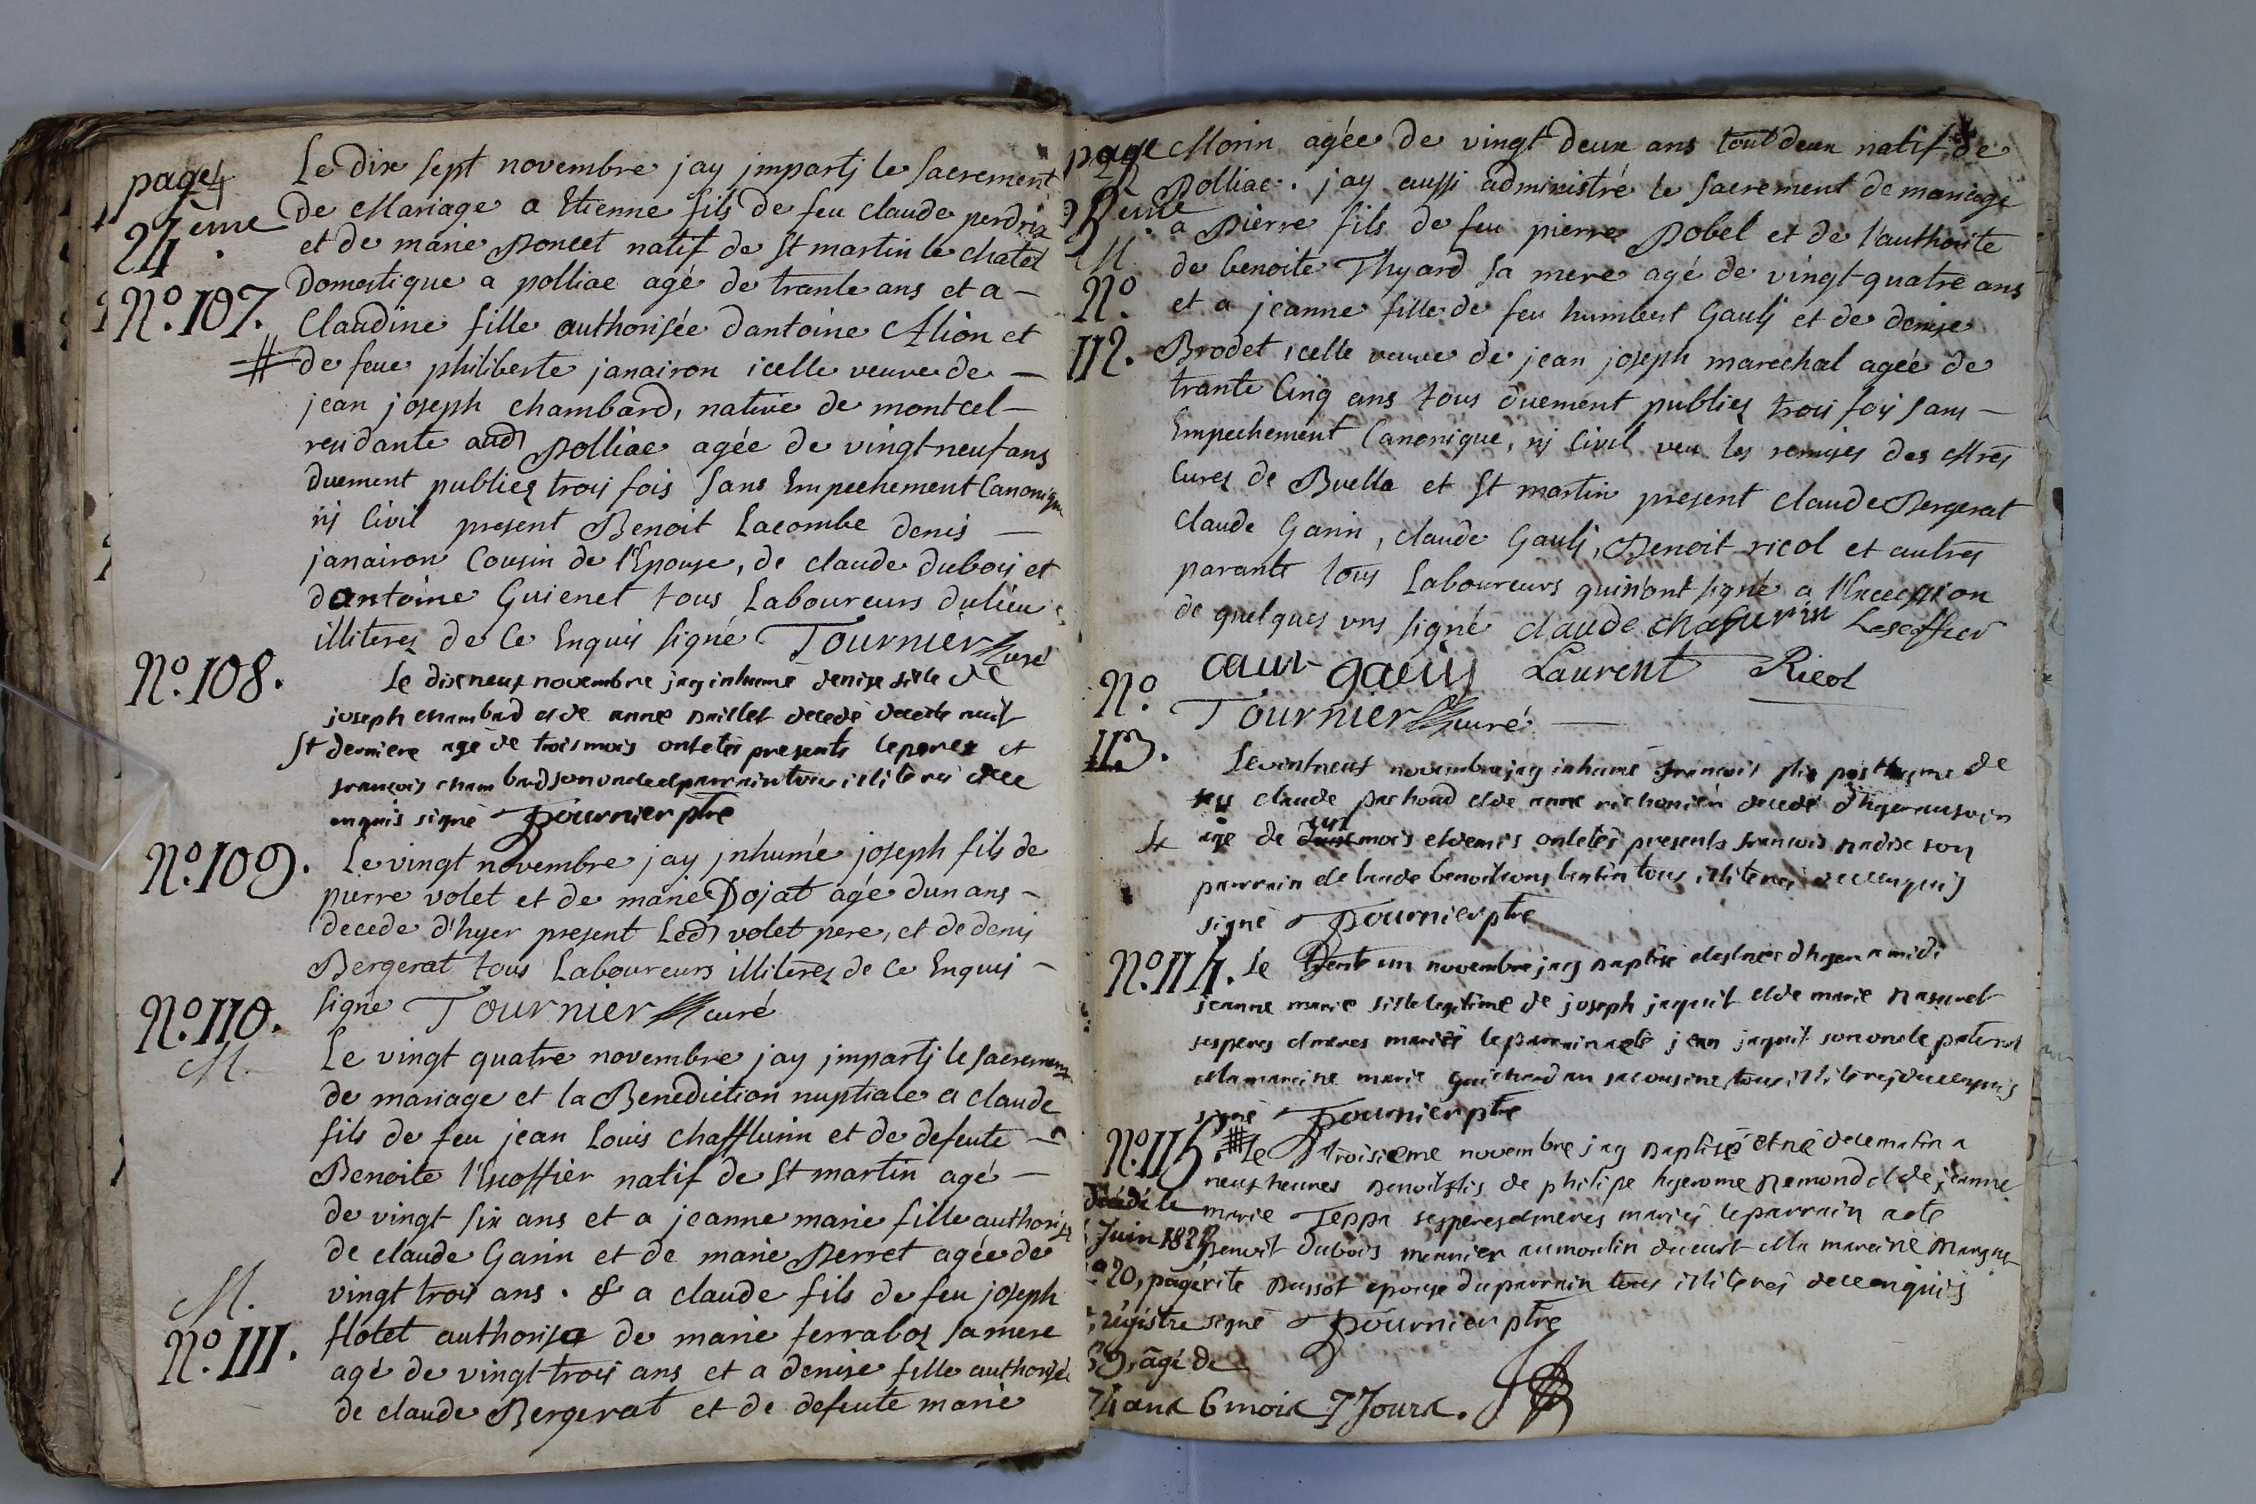 page
24 eme.
Nº.107.
Le dix sept novembre jay jmpartj le sacrement
de Mariage a Etienne fils de feu claude perdrix
et de marie Poncet natif de St martin le chatel
Domestique a polliac agé de trante ans et a –
Claudine fille authorisée dantoine Alion et
# de feue philiberte janairon icelle veuve de –
jean joseph chambard, native de montcel –
residante aud polliac agée de vingt neuf ans
duement publiez trois fois sans Empechement Canonique
nj Civil present Benoit Lacombe denis –
janairon Cousin de l'Epouse, de claude dubois et
dantoine Guienet tous Laboureurs dulieu
illiterez de Ce Enquis signé Tournier curé
Nº.108.
Le dixneuf novembre jay inhumé denise fille de
joseph chambad et de anne paillet decedé decette nuit
St derniere agé de troismois ontetés presents leperes et
francois chambard sononcle et parrain tous illiterés dece
enquis signé Tournier ptre
Nº.109.
Le vingt novembre jay jnhumé joseph fils de
pierre volet et de marie Dojat agé dun ans –
decede d'hyer present Led volet pere, et de denis
Bergerat tous Laboureurs illiterez de Ce Enquis –
signé Tournier curé
Nº.110.
M.
Le vingt quatre novembre jay jmpartj le sacrement
de mariage et la Benediction nuptiale a claude
fils de feu jean Louis chafflurin et de defeute –
Benoite l'Escoffier natif de St martin agé –
de vingt six ans et a jeanne marie fille authorisé
de claude Garin et de marie Perret agée de
vingt trois ans. & a claude fils de feu joseph
M.
Nº.111.
flotet authorisa de marie ferraboz sa mere
agé de vingt-trois ans et a denise fille authorisée
de claude Bergerat et de defeute marie
page
M
Nº
112.
Morin agée de vingt deux ans tout deux natif de
Polliac. jay aussi administré le sacrement de mariage
a Pierre fils de feu pierre Pobel et de l'authorite
de benoite Thyard sa mere agé de vingt-quatre ans
et a jeanne fille de feu humbert Gaulj et de denise
Brodet icelle veuve de jean joseph marechal agée de
trante Cinq ans tous duement publiez trois fois sans –
Empechement Canonique, nj Civil veu les remises des Mrés
Curez de Buella et St martin present claude Bergerat
claude Garin, claude Gaulj, Benoit ricol et autres
parants tous Laboureurs quin'ont signé a l'Exception
de quelques uns signé claude chafurin Lescoffier
Laurent Ricol
Nº
113.
Tournier curé. –
Levintneuf novembre jay inhumé francois fils posthume de
feu claude pachoud et de anne decedé d'hyer ausoir
age de mois et demis ontetés presents francois nadix son
parrain et claude benoit tous illiterés dece enquis
signé Tournier ptre
Nº.114.
Le trente un novembre jay baptisé et d hyer a midi
jeanne marie fille legitime de joseph jaquit et de marie
sesperes et meres mariés le parrain aeté jean jaquit sononcle paternel
et la mareine marie sa cousine tous illiterés dece enquis
signé Tournier ptre
Nº.115. #
Le troisieme novembre jay baptisé et né dece matin a
neuf heures benoit fils de philipe hyerome Remond et de jeanne
marie Teppa sesperes et meres mariés le parrain aeté
benoit dubois meunier au moulin et la mareine margue
rite Bussot epouse du parrain tous illiterés dece enquis
signé Tournier ptre
Décédé le
Juin 182
20, page
régistre
âgé de
74 ans 6 mois 7 Jours.